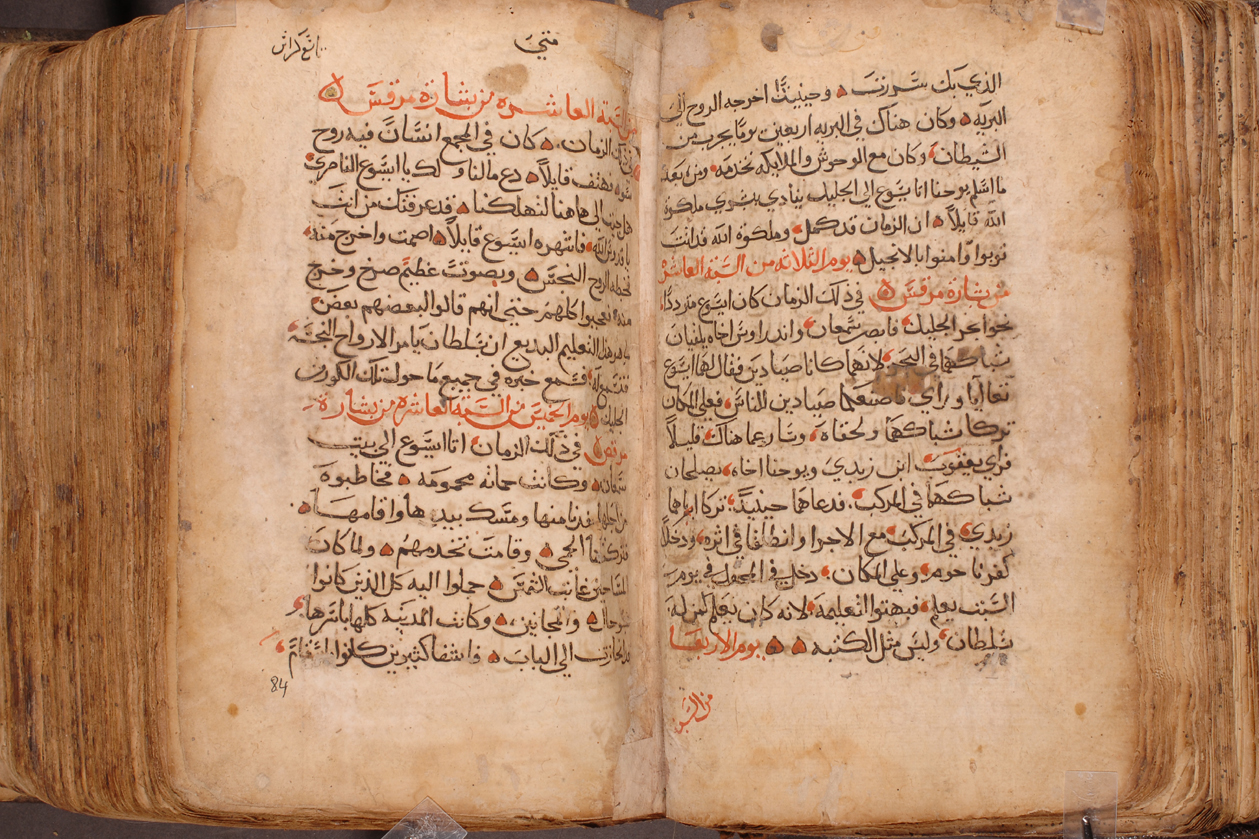 الذي بك سررت وحينيذًا اخرجه الروح الى
البريه وكان هناك في البريه اربعين يومًا يجرب من
الشيطان وكان مع الوحوش والملايكه تخدمه ومن بعد
ما اسلم يوحنا اتا يسوع الى الجليل ينادي ببشري ملكوة
الله قايلاً ان الزمان قد كمل وملكوة الله قد انت
توبوا وامنوا بالانجيل يوم الثلاثه من السبة العاشرة
من بشارة مرقس في ذلك الزمان كان ايسوع مترددًا
نحو بحر الجليل فابصر شمعان واندراوس اخاه يلقيان
شباكهما في البحر لانهما كانا صيادين فقال لهما ايسوع
تعاليا وراي فاصنعكما صيادين للناس فعلي المكان
تركا شباكهما ولحقاه وسار عما هناك قليلاً
فراي يعقوب ابن زبدي ويوحنا اخاه يصلحان
شباكهما في المركب فدعاهما حينيذ تركا اباهما
زبدي في المركب مع الاجرا وانطلقا في اثره ودخلا
كفرناحوم وعلي المكان دخل في المحفل في يوم
السبت يعلم فبهتوا لتعليمه لانه كان يعلم كمن له
سلطان وليس مثل الكتبه يوم الاربعا
من السبه
تاسع كراس
متي
من السبة العاشره من بشارة مرقس
في ذلك الزمان كان في المجمع انسان فيه روح
فهتف قايلاً دع مالنا ولك يا ايسوع الناصري
هل جيت الى هاهنا لتهلكنا قد عرفتك من انت
يا قدوس الله فانتهره ايسوع قايلاً اصمت واخرج منه
الروح النجس وبصوت عظيم صرخ وخرج
منه فتعجبوا كلهم حتي انهم قالوا لبعضهم بعض
ما هو هذا التعليم البديع ان بسلطان يامر الارواح النجسه
فسمع خبره في جميع ما حول تلك الكورة
الجليل يوم الخميس من السبة العاشره من بشارة
مرقس في ذلك الزمان اتا ايسوع الى بيت
سمعان وكانت حماته محمومه فخاطبوه
من اجلها فدنا منها ومسك بيدها واقامها
فتركتها الحمي وقامت تخدمهم ولما كان
المسا حين غابت الشمس حملوا اليه كل الذين كانوا
بسو حال والمجانين وكانت المدينه كلها باسرها
الى الباب فاشفا كثيرين كانوا
84